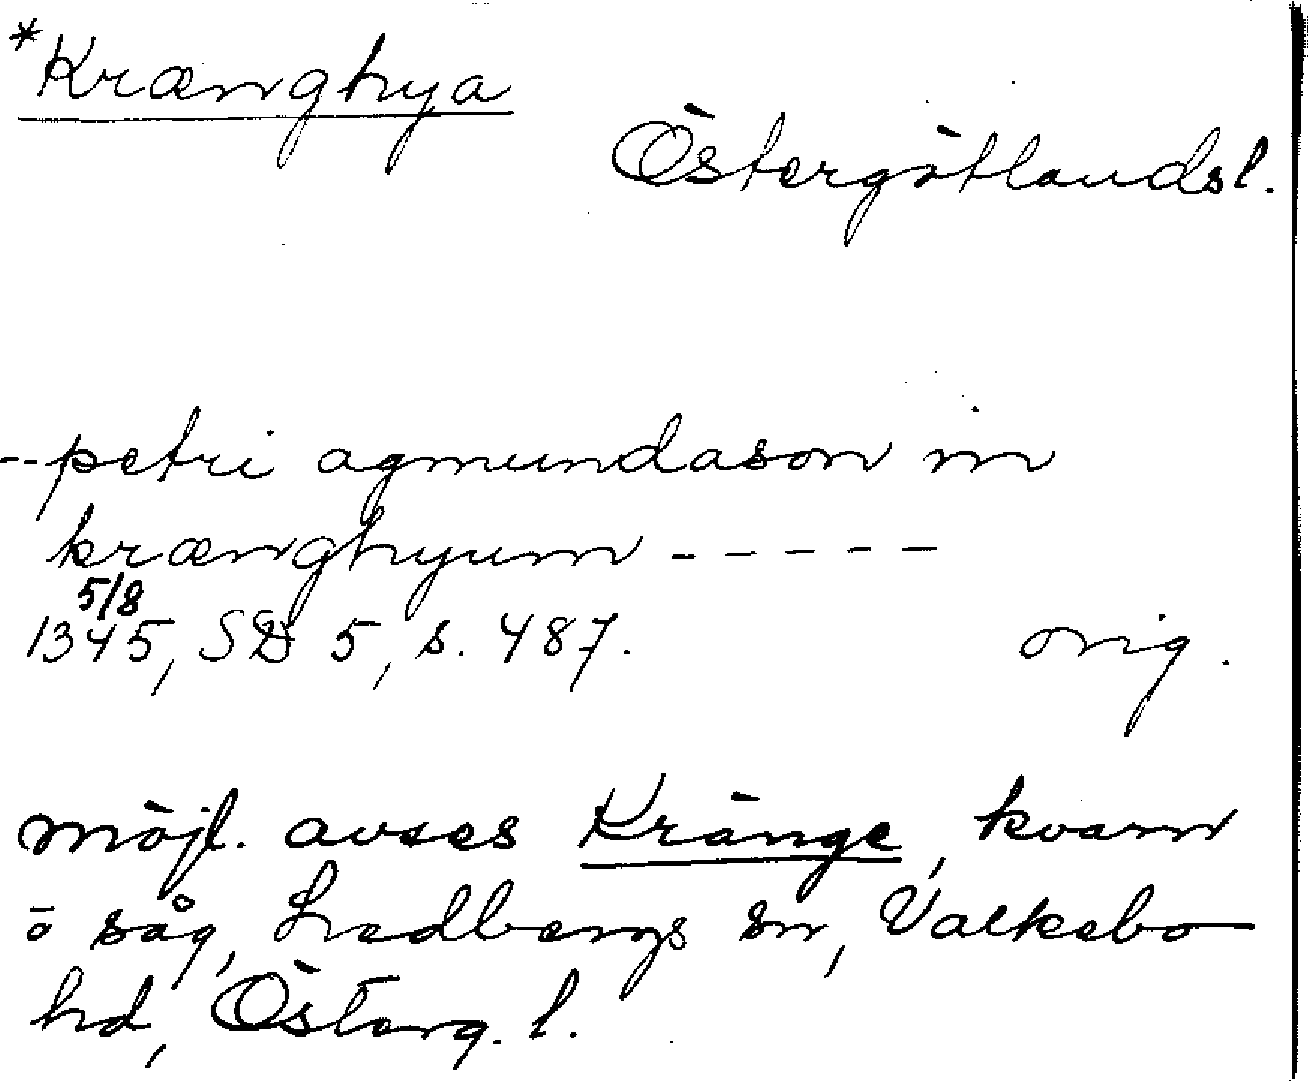 *Krænghya
Östergötlandsl.
--petri agmundason in
krænghyum -----
5/8
1345, SD 5, s. 487.
orig.
möjl. avses Kränge, kvarn
o såg, Ledbergs sn, Valkebo
hd, Österg. l.